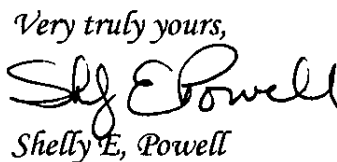 Very truly yours,
Shly E Powell
Shelly E, Powell